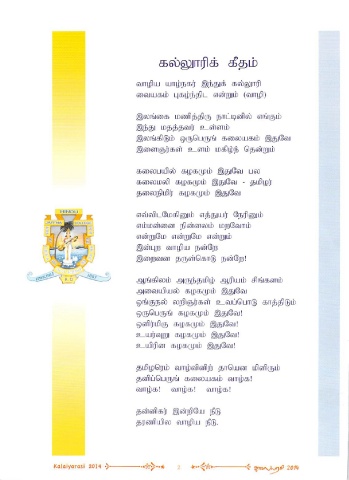 கல்லூரிக் கீதம்
வாழிய யாழ்நகர் இந்துக் கல்லூரி
வையகம் புகழ்ந்திட என்றும் (வாழி)
இலங்கை மணித்திரு நாட்டினில் எங்கும்
இந்து மதத்தவர் உள்ளம்
இலங்கிடும் ஒருபெருங் கலையகம் இதுவே
இளைஞர்கள் உளம் மகிழ்ந் தென்றும்
கலைபயில் கழகமும் இதுவே பல
கலைமலி கழகமும் இதுவே - தமிழர்
தலைநிமிர் கழகமும் இதுவே
எவ்விடமேகினும் எத்துயர் நேரினும்
எம்மன்னை நின்னலம் மறவோம்
என்றுமே என்றுமே என்றும்
இன்புற வாழிய நன்றே
இறைவன தருள்கொடு நன்றே!
ஆங்கிலம் அருந்தமிழ் ஆரியம் சிங்களம்
அவைபயில் கழகமும் இதுவே
ஓங்குநல் லறிஞர்கள் உவப்பொடு காத்திடும்
ஒருபெருங் கழகமும் இதுவே!
ஒளிர்மிகு கழகமும் இதுவே!
உயர்வுறு கழகமும் இதுவே!
உயிரின கழகமும் இதுவே!
தமிழரெம் வாழ்வினிற் தாயென மிளிரும்
தனிப்பெருங் கலையகம் வாழ்க!
வாழ்க! வாழ்க! வாழ்க!
தன்னிகர் இன்றியே நீடு
தரணியில வாழிய நீடு.
Kalaiyarasi 2014
2014